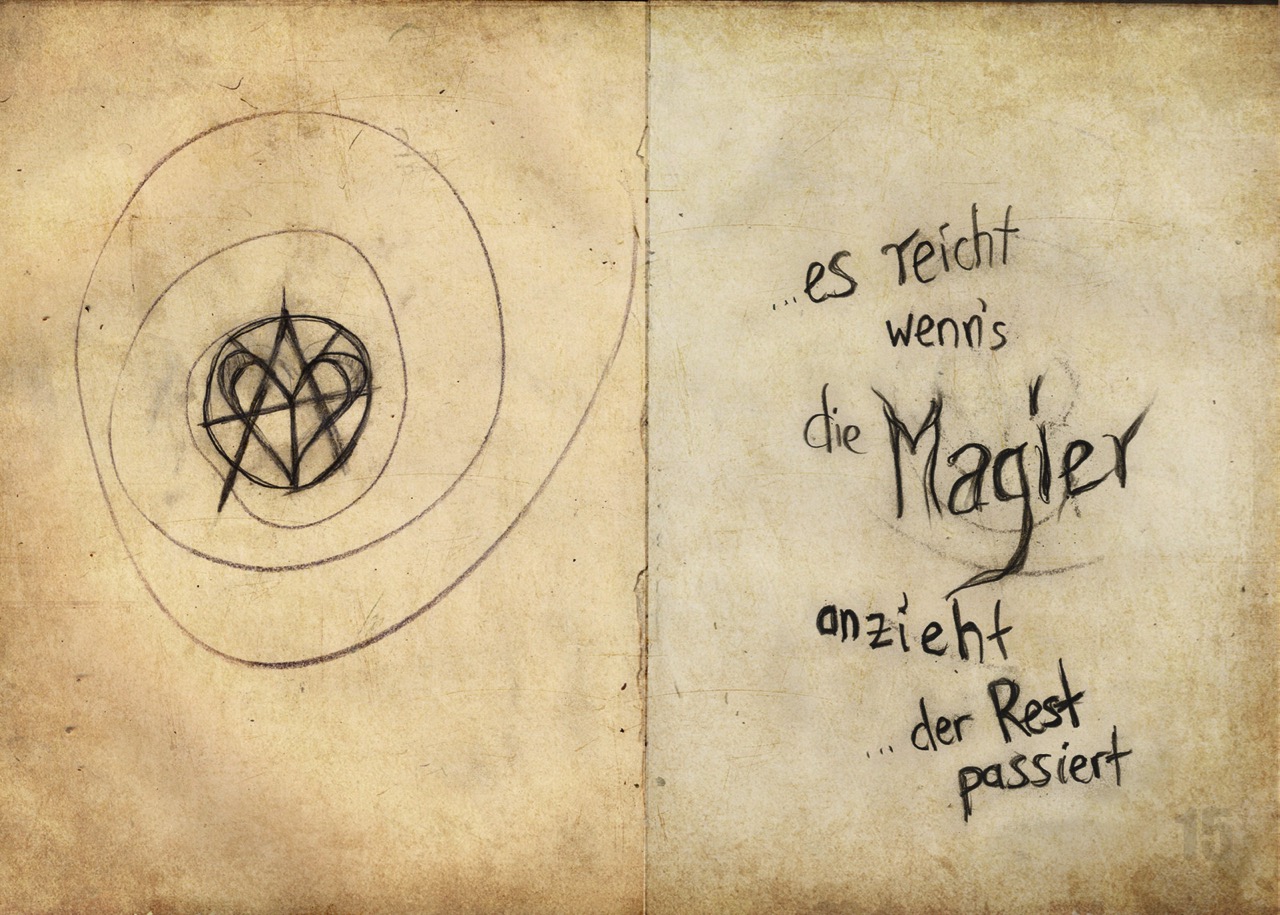 ...es reicht
wenn's
die Magier
anzieht
...der Rest
passiert
15